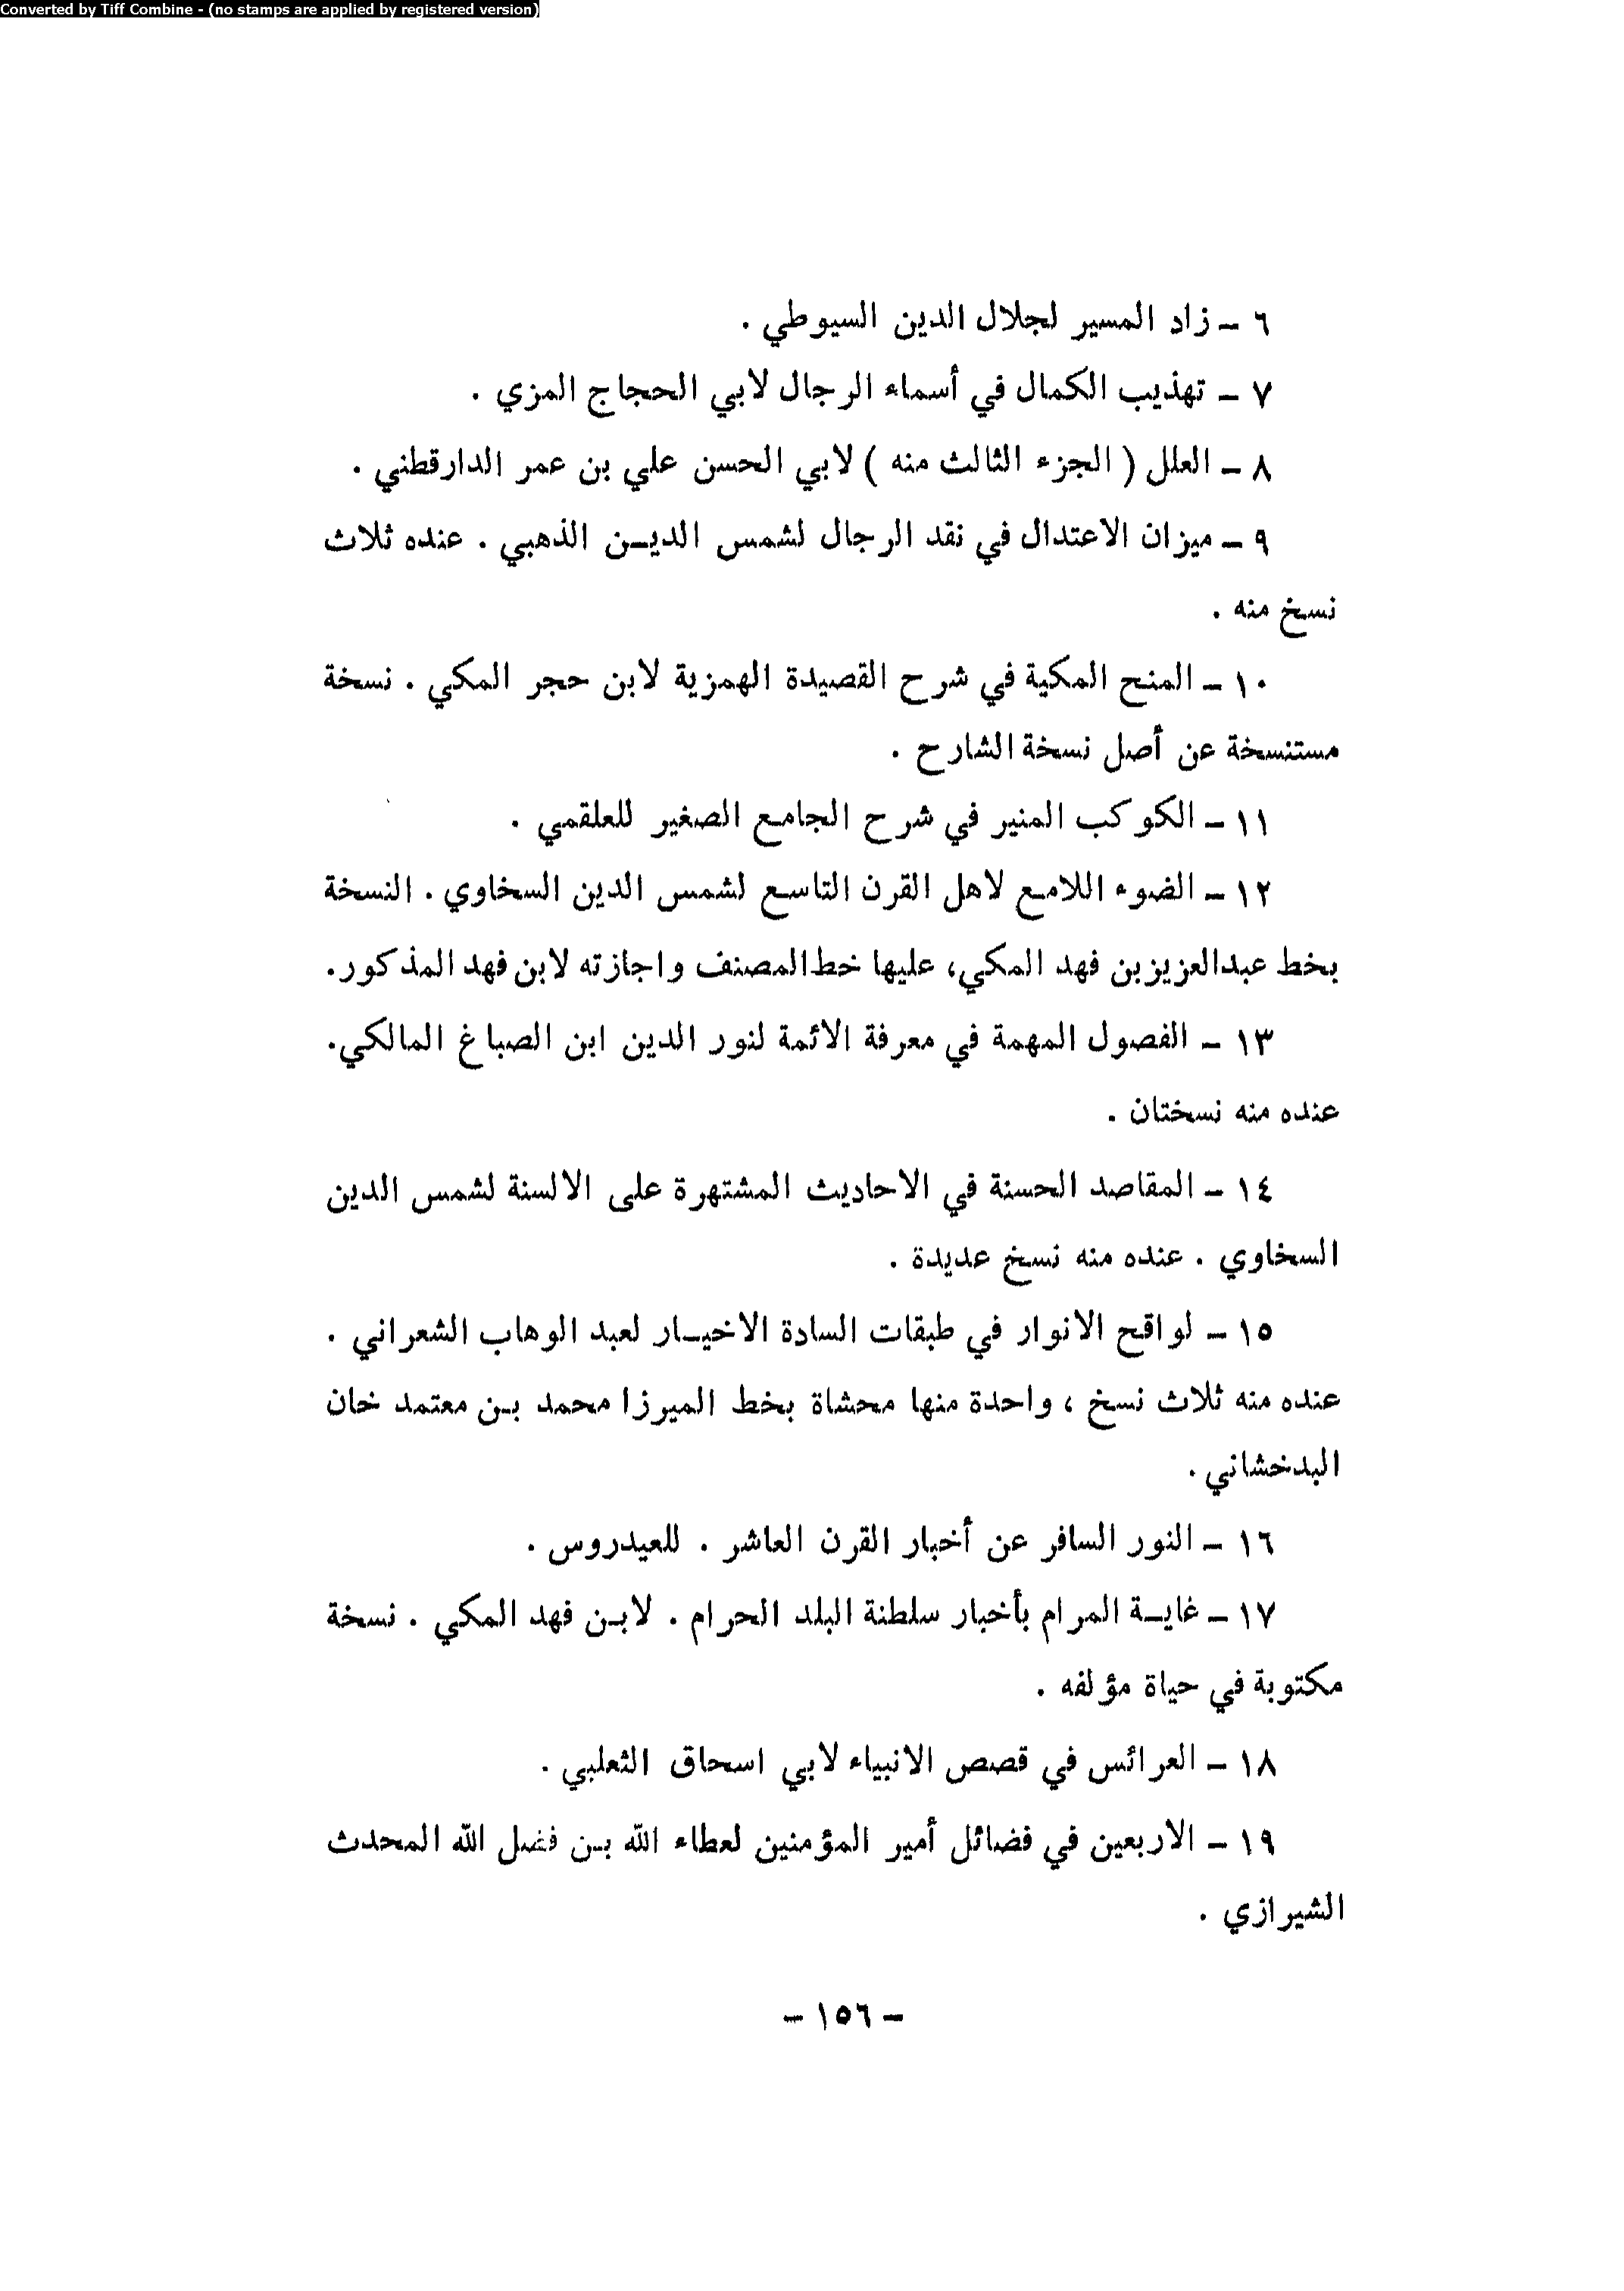 Converted by Tiff Combine - (no stamps are applied by registered version)
٦ – زاد المسير لجلال الدين السيوطي .
٧ – تهذيب الكمال في أسماء الرجال لابي الحجاج المزي .
٨ – العلل ( الجزء الثالث منه ) لابي الحسن علي بن عمر الدارقطني .
٩ – ميزان الاعتدال في نقد الرجال لشمس الديـن الذهبي . عنده ثلاث
نسخ منه .
١٠ – المنح المكية في شرح القصيدة الهمزية لابن حجر المكي . نسخة
مستنسخة عن أصل نسخة الشارح .
١١ – الكوكب المنير في شرح الجامع الصغير للعلقمي .
١٢ – الضوء اللامع لاهل القرن التاسع لشمس الدين السخاوي . النسخة
بخط عبدالعزيز بن فهد المكي، عليها خط المصنف واجازته لابن فهد المذكور.
١٣ – الفصول المهمة في معرفة الائمة لنور الدين ابن الصباغ المالكي.
عنده منه نسختان .
١٤ – المقاصد الحسنة في الاحاديث المشتهرة على الالسنة لشمس الدين
السخاوي . عنده منه نسخ عديدة .
١٥ – لواقح الانوار في طبقات السادة الاخيـار لعبد الوهاب الشعراني .
عنده منه ثلاث نسخ ، واحدة منها محشاة بخط الميرزا محمد بـن معتمد خان
البدخشاني .
١٦ – النور السافر عن أخبار القرن العاشر . للعيدروس .
١٧ – غايـة المرام بأخبار سلطنة البلد الحرام . لابـن فهد المكي . نسخة
مكتوبة في حياة مؤلفه .
١٨ – العرائس في قصص الانبياء لابي اسحاق الثعلبي .
١٩ – الاربعين في فضائل أمير المؤمنين لعطاء الله بـن فضل الله المحدث
الشيرازي .
– ١٥٦ –